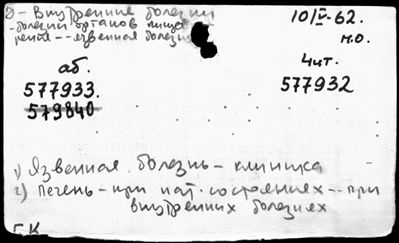 8 - Внутренние болезни
- болезни органов пище
рения -- язвенная болезнь
10/IV-62.
н.о.
аб.
577933.
579840
Чит.
577932
1) Язвенная болезнь - клиника
2) Печень - при пат. состояниях -- при
внутренних болезнях
Г.К.